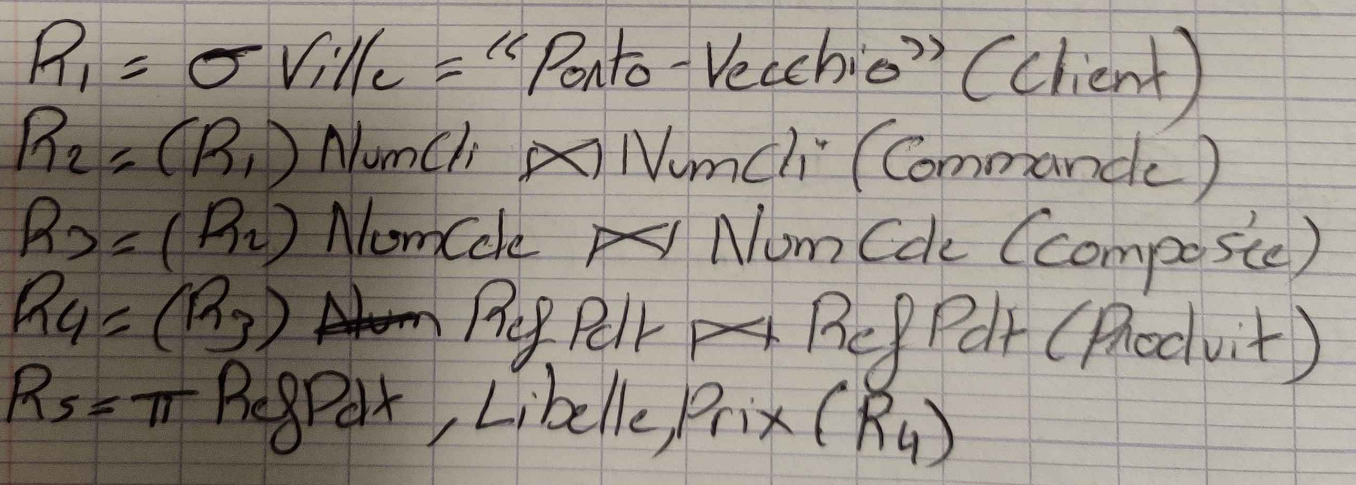 R1 = σ Ville = "Porto-Vecchio" (Client)
R2 = (R1) NumCli ⋈ NumCli (Commande)
R3 = (R2) NumCde ⋈ NumCde (composée)
R4 = (R3) Num RefPdt ⋈ RefPdt (Produit)
R5 = π RefPdt, Libelle, Prix (R4)